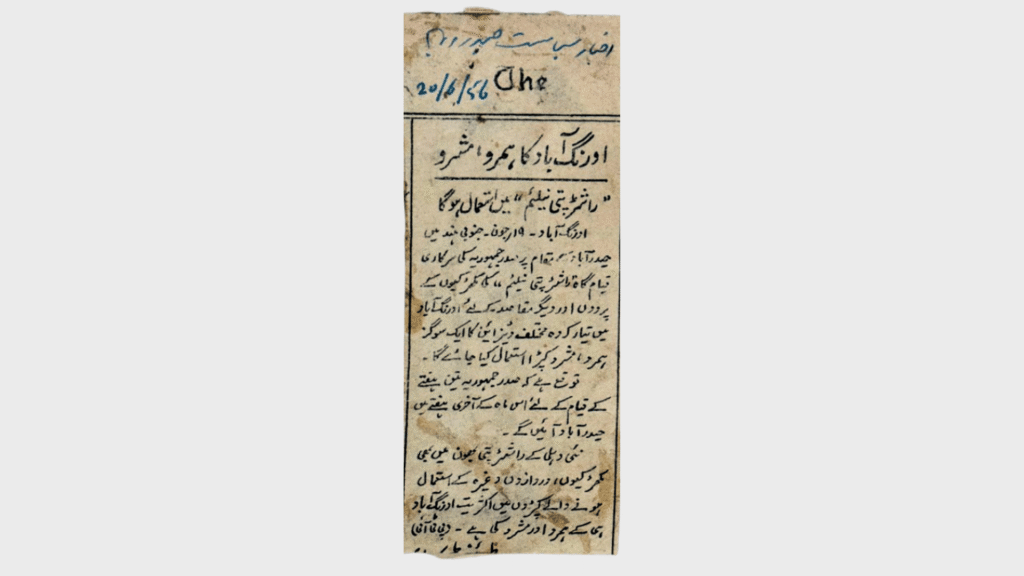 اخبار سیاست حیدرآباد
20/6/56 The
اورنگ آباد کا ہمرو، مشرو
"راشٹرپتی نیلیم" میں استعمال ہوگا
اورنگ آباد۔ ۱۹ رجون۔ جنوبی ہند میں
حیدرآباد کے مقام پر صدر جمہوریہ کی سرکاری
قیام گاہ "راشٹرپتی نیلیم" کی کھڑکیوں کے
پردوں اور دیگر مقاصد کے لئے اورنگ آباد
میں تیار کردہ مختلف ڈیزائین کا ایک سو گز
ہمرو، مشرو کپڑا استعمال کیا جائے گا۔
توقع ہے کہ صدر جمہوریہ تین ہفتے
کے قیام کے لئے اس ماہ کے آخری ہفتے میں
حیدرآباد آئیں گے۔
نئی دہلی کے راشٹرپتی بھون میں بھی
کھڑکیوں، دروازوں وغیرہ کے استعمال
ہونے والے کپڑوں میں اکثریت اورنگ آباد
ہی کے ہمرو اور مشرو کی ہے۔ (پی ٹی آئی)